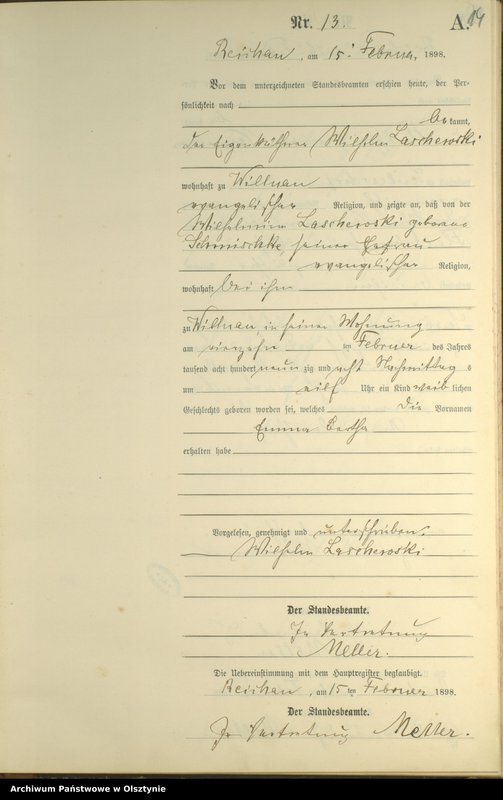 Nr. 13.
A.
14
Reichau, am 15. Februar 1898.
Vor dem unterzeichneten Standesbeamten erschien heute, der Per-
sönlichkeit nach
be kannt,
der Eigenkäthner Wilhelm Lascheroski
wohnhaft zu Willnau
evangelischer Religion, und zeigte an, daß von der
Wilhelmine Lascheroski geborene
Schmischke, seiner Ehefrau
evangelischer Religion,
wohnhaft bei ihm
zu Willnau, in seiner Wohnung
am vierzehn ten Februar des Jahres
tausend acht hundert neun zig und acht Nachmittag s
um eilf Uhr ein Kind weib lichen
Geschlechts geboren worden sei, welches die Vornamen
Emma Bertha
erhalten habe
Vorgelesen, genehmigt und unterschrieben.
Wilhelm Lascheroski
Der Standesbeamte.
In Vertretung
Meller.
Die Uebereinstimmung mit dem Hauptregister beglaubigt.
Reichau, am 15 ten Februar 1898.
Der Standesbeamte.
In Vertretung Meller.
Archiwum Państwowe w Olsztynie